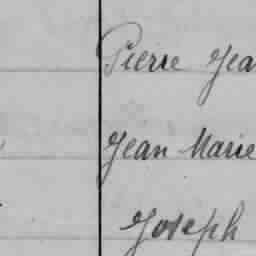 Pierre Jea
Jean Marie
Joseph